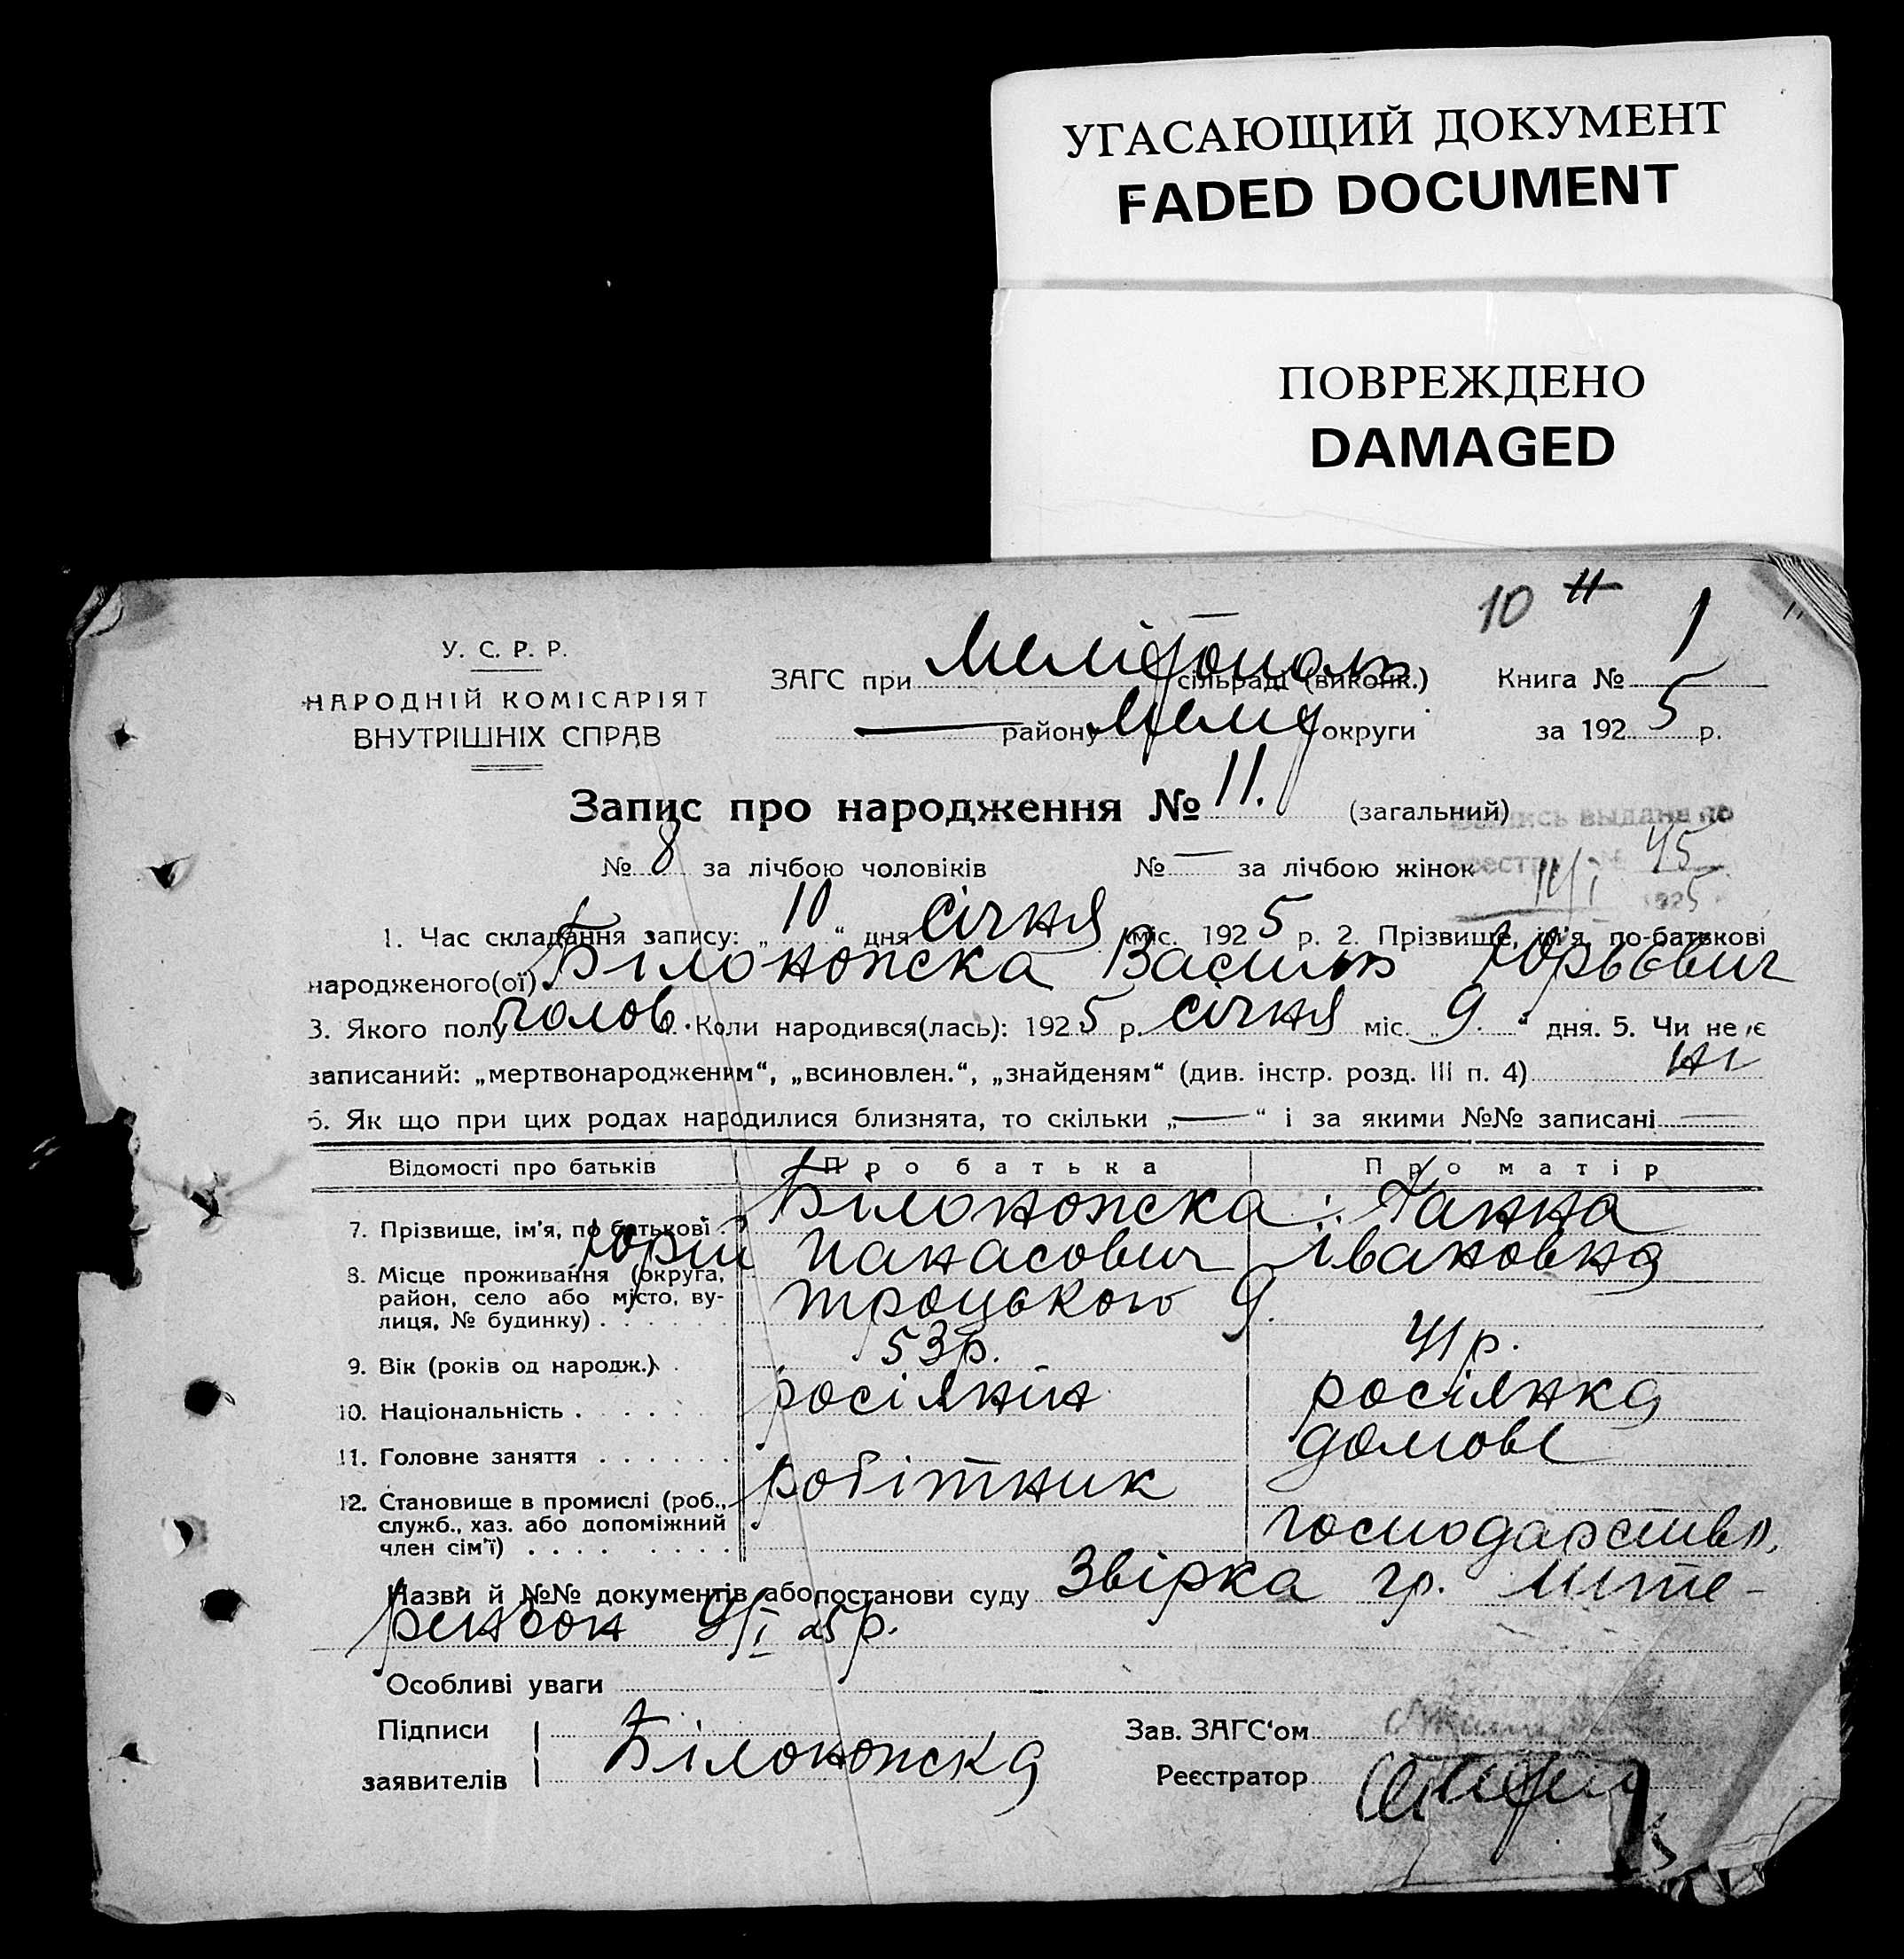 УГАСАЮЩИЙ ДОКУМЕНТ
FADED DOCUMENT
ПОВРЕЖДЕНО
DAMAGED
10 11
У. С. Р. Р.
НАРОДНІЙ КОМІСАРІЯТ
ВНУТРІШНІХ СПРАВ
ЗАГС при Мелітополь сільраді (виконк.) Книга № 1
— району Меліт округи за 1925 р.
Запис про народження № 11. (загальний)
запись выдана по
№ 8 за лічбою чоловіків № — за лічбою жінок
реестру № 45
14/I 1925
1. Час складання запису: „10“ дня січня міс. 1925 р. 2. Прізвище, ім'я, по-батькові
народженого(ої) Білоножска Василь Юрьєвич
3. Якого полу чолов. Коли народився(лась): 1925 р. січня міс. „9.“ дня. 5. Чи не є
записаний: „мертвонародженим“, „всиновлен.“, „знайденям“ (див. інстр. розд. III п. 4) ні
6. Як що при цих родах народилися близнята, то скільки „—“ і за якими №№ записані —
Відомості про батьків Про батька Про матір
7. Прізвище, ім'я, по батькові Білоножска Ганна
Юрій Панасович Івановна
8. Місце проживання (округа, район, село або місто, вулиця, № будинку) Троцького 9.
9. Вік (років од народж.) 53 р. 41 р.
10. Національність росіянин росіянка
11. Головне заняття домове
12. Становище в промислі (роб., служб., хаз. або допоміжний член сім'ї) робітник господарство.
Назви й №№ документів або постанови суду Звірка гр.
9/I 25 р.
Особливі уваги
Підписи заявителів Білоножска
Зав. ЗАГС'ом
Реєстратор